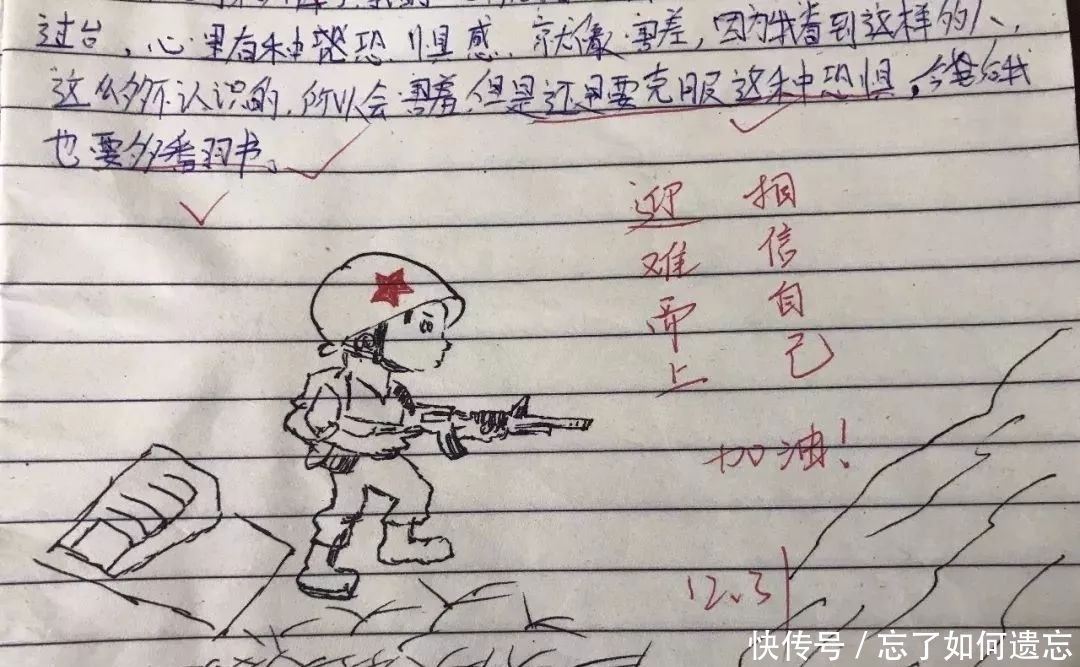 过台，心里有种恐惧感，就像害羞，因为我看到这样的人，
这么多不认识的，所以会害羞，但是还是要克服这种恐惧，
也要多看书。
相信自己
迎难而上
加油！
12.31
快传号 / 忘了如何遗忘